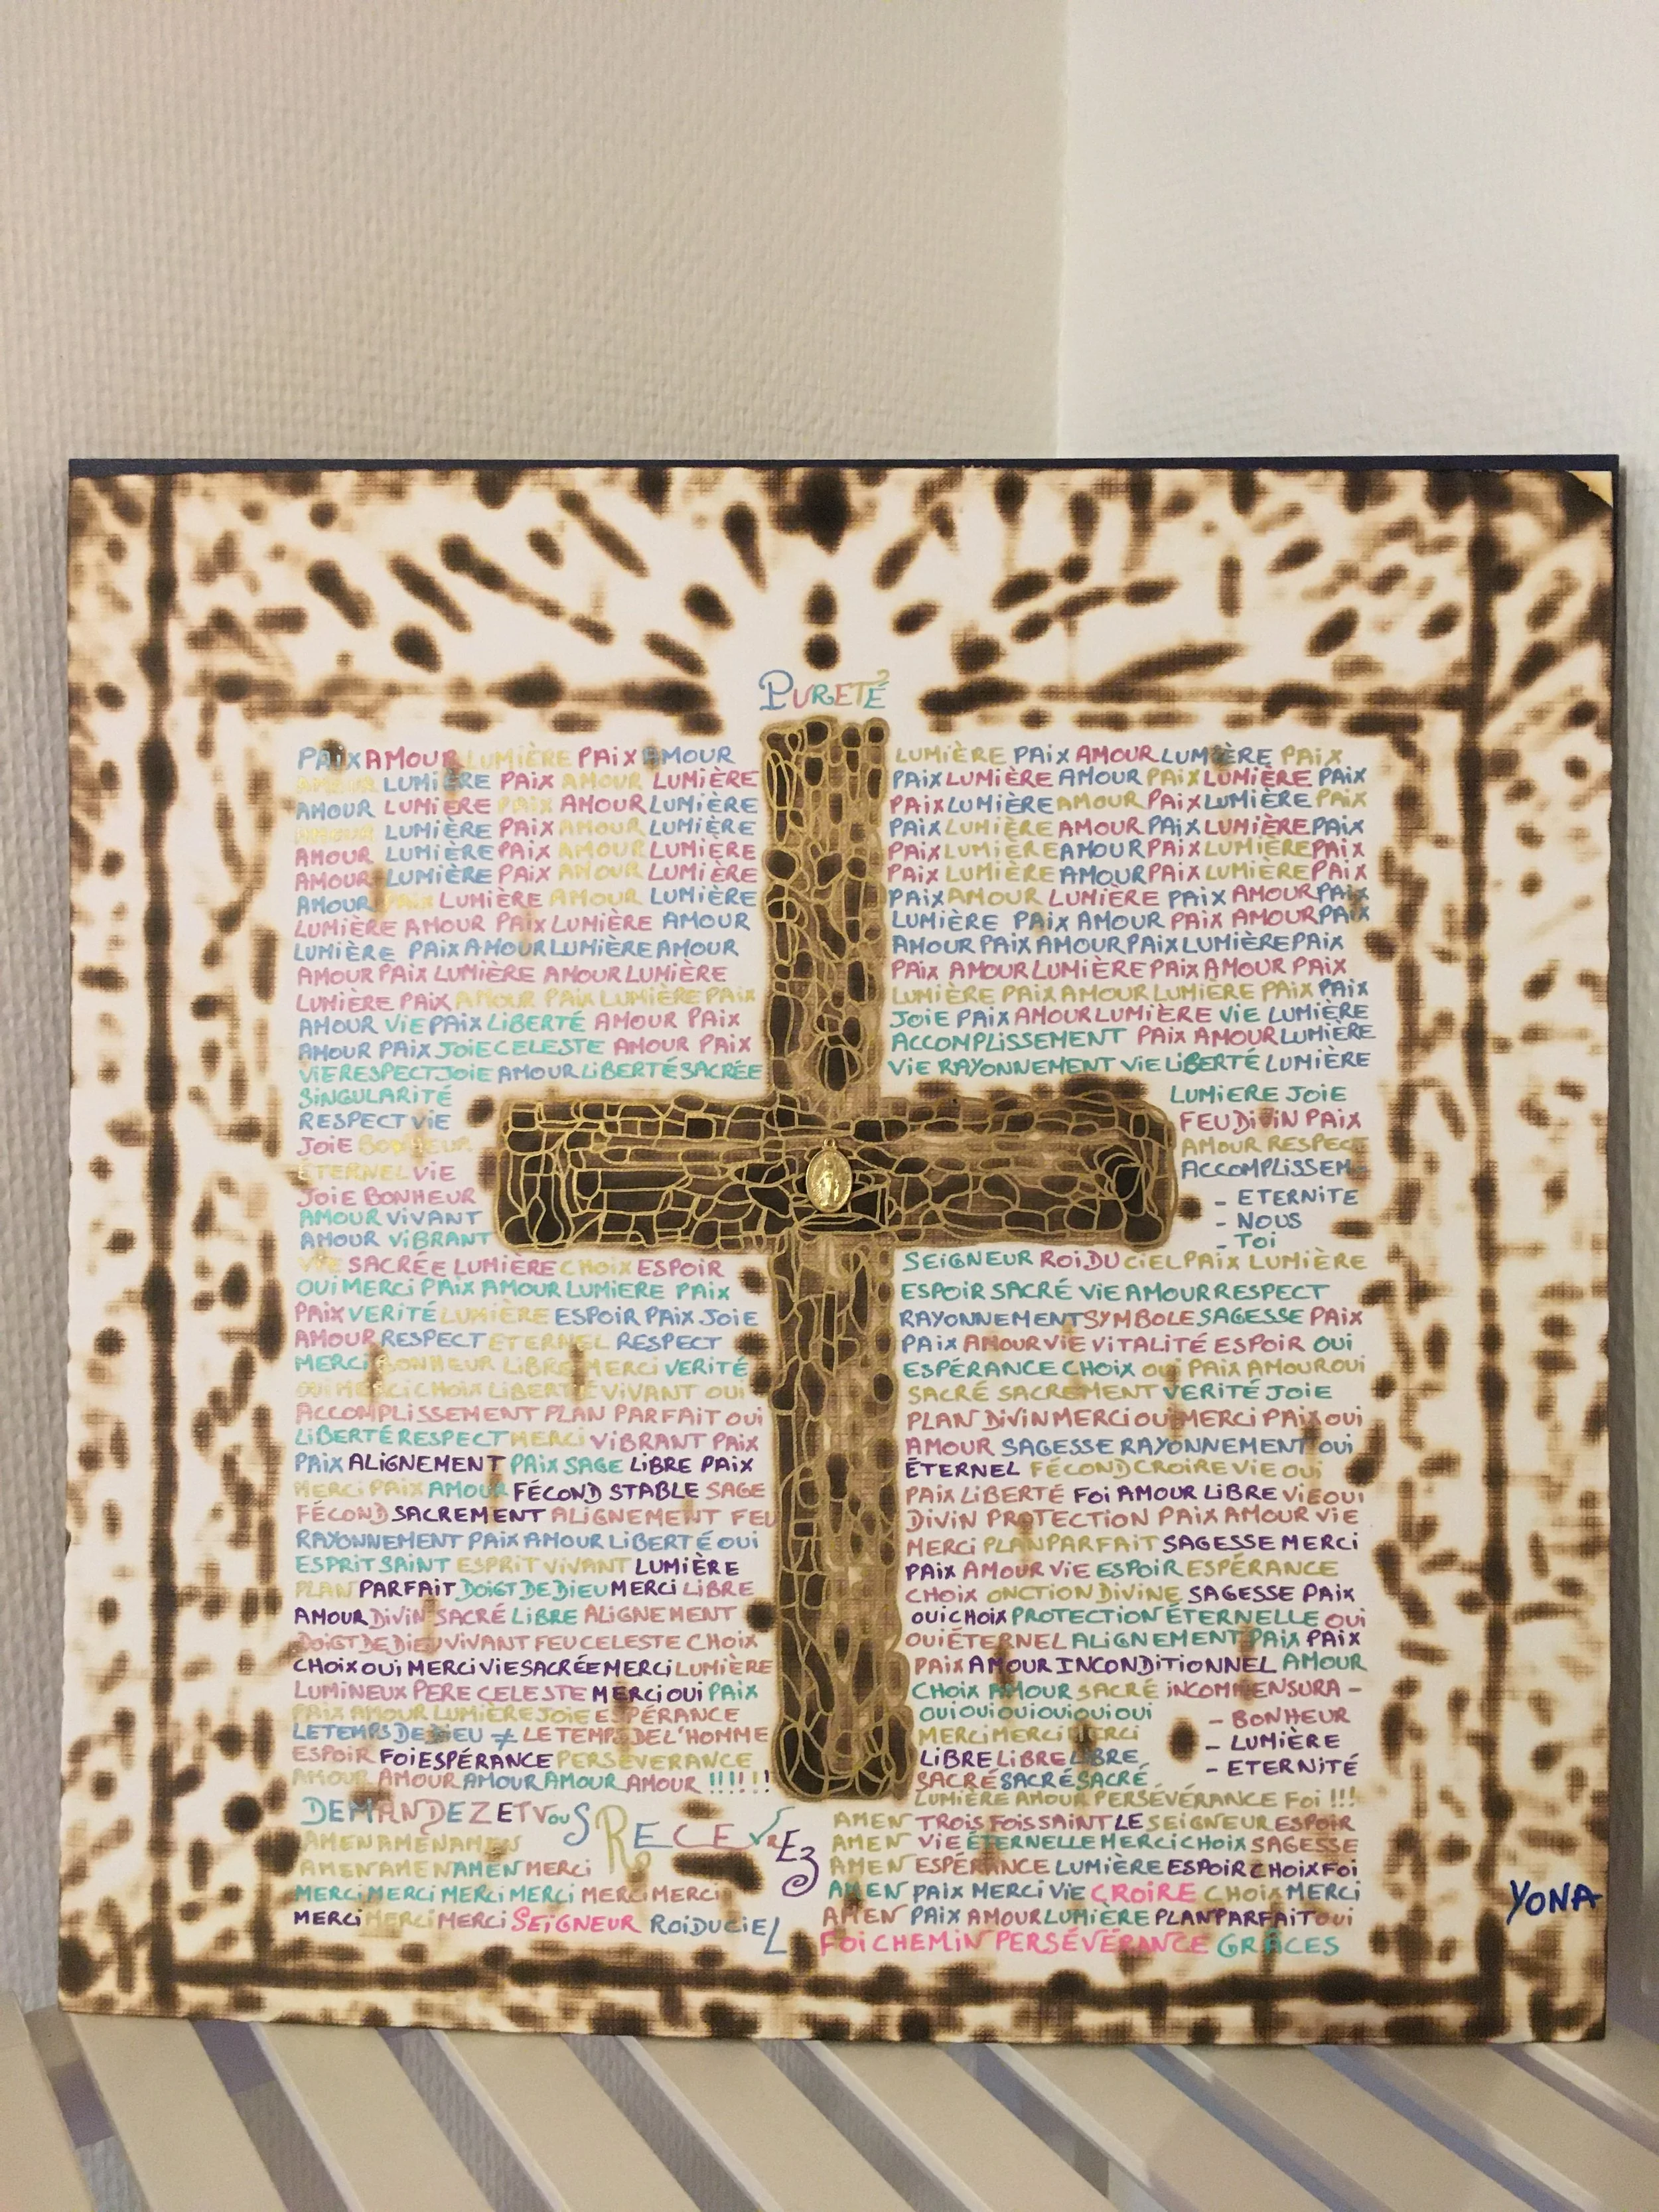 PURETÉ²
PAIX AMOUR LUMIÈRE PAIX AMOUR
AMOUR LUMIÈRE PAIX AMOUR LUMIÈRE
AMOUR LUMIÈRE PAIX AMOUR LUMIÈRE
AMOUR LUMIÈRE PAIX AMOUR LUMIÈRE
AMOUR LUMIÈRE PAIX AMOUR LUMIÈRE
AMOUR LUMIÈRE PAIX AMOUR LUMIÈRE
AMOUR PAIX LUMIÈRE AMOUR LUMIÈRE
LUMIÈRE AMOUR PAIX LUMIÈRE AMOUR
LUMIÈRE PAIX AMOUR LUMIÈRE AMOUR
AMOUR PAIX LUMIÈRE AMOUR LUMIÈRE
LUMIÈRE PAIX AMOUR PAIX LUMIÈRE PAIX
AMOUR VIE PAIX LIBERTÉ AMOUR PAIX
AMOUR PAIX JOIE CELESTE AMOUR PAIX
VIE RESPECT JOIE AMOUR LIBERTÉ SACRÉE
SINGULARITÉ
RESPECT VIE
JOIE BONHEUR
ÉTERNEL VIE
JOIE BONHEUR
AMOUR VIVANT
AMOUR VIBRANT
VIE SACRÉE LUMIÈRE CHOIX ESPOIR
OUI MERCI PAIX AMOUR LUMIERE PAIX
PAIX VERITÉ LUMIÈRE ESPOIR PAIX JOIE
AMOUR RESPECT ETERNEL RESPECT
MERCI BONHEUR LIBRE MERCI VERITÉ
OUI MERCI CHOIX LIBERTÉ VIVANT OUI
ACCOMPLISSEMENT PLAN PARFAIT OUI
LIBERTÉ RESPECT MERCI VIBRANT PAIX
PAIX ALIGNEMENT PAIX SAGE LIBRE PAIX
MERCI PAIX AMOUR FÉCOND STABLE SAGE
FÉCOND SACREMENT ALIGNEMENT FEU
RAYONNEMENT PAIX AMOUR LIBERTÉ OUI
ESPRIT SAINT ESPRIT VIVANT LUMIÈRE
PLAN PARFAIT DOIGT DE DIEU MERCI LIBRE
AMOUR DIVIN SACRÉ LIBRE ALIGNEMENT
DOIGT DE DIEU VIVANT FEU CELESTE CHOIX
CHOIX OUI MERCI VIE SACRÉE MERCI LUMIÈRE
LUMINEUX PERE CELESTE MERCI OUI PAIX
PAIX AMOUR LUMIERE JOIE ESPÉRANCE
LE TEMPS DE DIEU ≠ LE TEMPS DE L'HOMME
ESPOIR FOI ESPÉRANCE PERSÉVERANCE
AMOUR AMOUR AMOUR AMOUR AMOUR !!!!!!
DEMANDEZ ET VOUS RECEVREZ
AMEN AMÉN AMEN
AMEN AMEN AMEN MERCI
MERCI MERCI MERCI MERCI MERCI MERCI
MERCI MERCI MERCI SEIGNEUR ROI DU CIEL
LUMIÈRE PAIX AMOUR LUMIÈRE PAIX
PAIX LUMIÈRE AMOUR PAIX LUMIÈRE PAIX
PAIX LUMIÈRE AMOUR PAIX LUMIÈRE PAIX
PAIX LUMIÈRE AMOUR PAIX LUMIÈRE PAIX
PAIX LUMIÈRE AMOUR PAIX LUMIÈRE PAIX
PAIX LUMIÈRE AMOUR PAIX LUMIÈRE PAIX
PAIX AMOUR LUMIÈRE PAIX AMOUR PAIX
LUMIÈRE PAIX AMOUR PAIX AMOUR PAIX
AMOUR PAIX AMOUR PAIX LUMIÈRE PAIX
PAIX AMOUR LUMIÈRE PAIX AMOUR PAIX
LUMIÈRE PAIX AMOUR LUMIERE PAIX PAIX
JOIE PAIX AMOUR LUMIÈRE VIE LUMIÈRE
ACCOMPLISSEMENT PAIX AMOUR LUMIÈRE
VIE RAYONNEMENT VIE LIBERTÉ LUMIÈRE
LUMIERE JOIE
FEU DIVIN PAIX
AMOUR RESPECT
ACCOMPLISSEM-
- ETERNITE
- NOUS
- TOI
SEIGNEUR ROI DU CIEL PAIX LUMIÈRE
ESPOIR SACRÉ VIE AMOUR RESPECT
RAYONNEMENT SYMBOLE SAGESSE PAIX
PAIX AMOUR VIE VITALITÉ ESPOIR OUI
ESPÉRANCE CHOIX OUI PAIX AMOUR OUI
SACRÉ SACREMENT VERITÉ JOIE
PLAN DIVIN MERCI OUI MERCI PAIX OUI
AMOUR SAGESSE RAYONNEMENT OUI
ÉTERNEL FÉCOND CROIRE VIE OUI
PAIX LIBERTÉ FOI AMOUR LIBRE VIE OUI
DIVIN PROTECTION PAIX AMOUR VIE
MERCI PLAN PARFAIT SAGESSE MERCI
PAIX AMOUR VIE ESPOIR ESPÉRANCE
CHOIX ONCTION DIVINE SAGESSE PAIX
OUI CHOIX PROTECTION ÉTERNELLE OUI
OUI ÉTERNEL ALIGNEMENT PAIX PAIX
PAIX AMOUR INCONDITIONNEL AMOUR
CHOIX AMOUR SACRÉ INCOMMENSURA -
OUI OUI OUI OUI OUI OUI
MERCI MERCI MERCI
LIBRE LIBRE LIBRE
SACRÉ SACRÉ SACRÉ
- BONHEUR
- LUMIÈRE
- ETERNITÉ
LUMIÈRE AMOUR PERSÉVÉRANCE FOI !!!
AMEN TROIS FOIS SAINT LE SEIGNEUR ESPOIR
AMEN VIE ÉTERNELLE MERCI CHOIX SAGESSE
AMEN ESPÉRANCE LUMIÈRE ESPOIR CHOIX FOI
AMEN PAIX MERCI VIE CROIRE CHOIX MERCI
AMEN PAIX AMOUR LUMIÈRE PLAN PARFAIT OUI
FOI CHEMIN PERSÉVÉRANCE GRÂCES
YONA